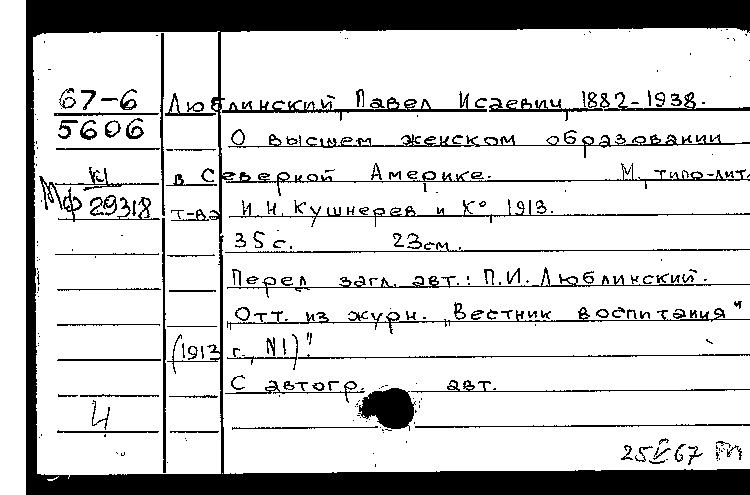 67-6
5606
К1
Мф 29318
Люблинский, Павел Исаевич, 1882-1938.
О высшем женском образовании
в Северной Америке. М., типо-лит.
т-ва И.Н. Кушнерев и К°, 1913.
35 с. 23 см.
Перед загл. авт.: П.И. Люблинский.
„Отт. из журн. „Вестник воспитания"
(1913 г., N1)".
С автогр. авт.
4
25 V 67